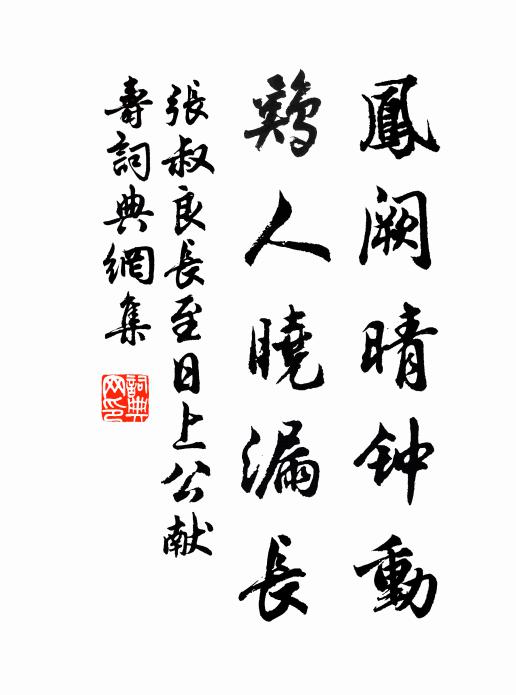 鳳闕晴钟動
鷄人曉漏長
張叔良長至日上公献
壽詞典網集
詞典网印